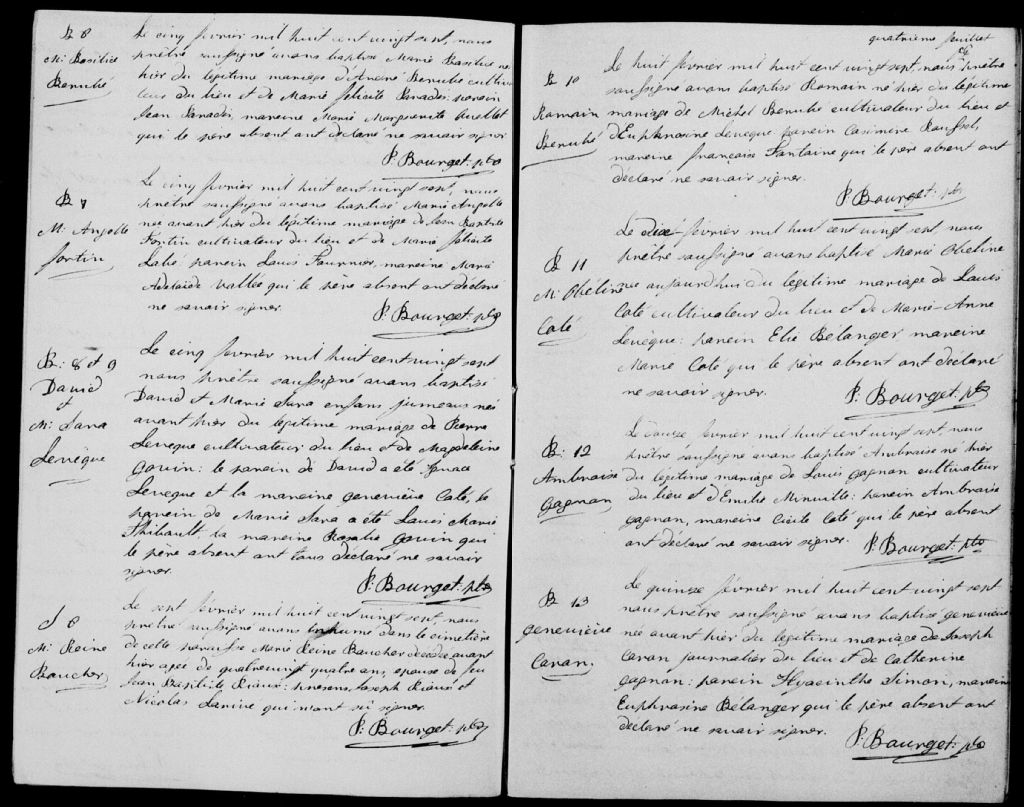 B 8
M: Basilise
Berubé
Le cinq février mil huit cent vingt sept, nous
prêtre soussigné avons baptisé Marie Basilise née
hier du légitime mariage d'André Berubé cultiva
teur du lieu et de Marie félicité Paradis: parain
Jean Paradis, maraine Marie Marguerite Ouellet
qui le père absent ont déclaré ne savoir signer
P. Bourget. ptre
B 7
M: Angelle
fortin
Le cinq février mil huit cent vingt sept, nous
prêtre soussigné avons baptisé Marie Angelle
née avant hier du légitime mariage de Jean Baptiste
Fortin cultivateur du lieu et de Marie félicité
Labé: parain Louis Fournier, maraine Marie
Adelaide Vallée qui le père absent ont déclaré
ne savoir signer.
P. Bourget. ptre
B: 8 et 9
David
et
M: Sara
Levêque
Le cinq février mil huit cent vingt sept
nous prêtre soussigné avons baptisé
David et Marie Sara enfans jumeaux nés
avant hier du légitime mariage de Pierre
Leveque cultivateur du lieu et de Magdeleine
gouin: le parain de David a été Ignace
Leveque et la maraine geneviève Coté, le
parain de Marie Sara a été Louis Marie
Thibault, la maraine Rosalie gouin qui
le père absent ont tous déclaré ne savoir
signer.
P. Bourget. ptre
S 8
M: Reine
Boucher
Le sept février mil huit cent vingt sept, nous
prêtre soussigné avons inhumé dans le cimetière
de cette paroisse Marie Reine Boucher décédée avant
hier agée de quatrevingt quatre ans, epouse de feu
Jean Baptiste Rioux: présens, Joseph Rioux et
Nicolas Larive qui n'ont sû signer.
P. Bourget. ptre
quatrième feuillet
B 10
Romain
Berubé
Le huit février mil huit cent vingt sept, nous prêtre
soussigné avons baptisé Romain né hier du légitime
mariage de Michel Berubé cultivateur du lieu et
d'Euphrosine Leveque parain Casimire Roussel,
maraine françoise Fontaine qui le père absent ont
déclaré ne savoir signer.
P. Bourget. ptre
B 11
M: Obeline
Coté
Le dix février mil huit cent vingt sept, nous
prêtre soussigné avons baptisé Marie Obeline
née aujourdhui du légitime mariage de Louis
Coté cultivateur du lieu et de Marie-Anne
Levêque: parain Elie Bélanger maraine
Marie Coté qui le père absent ont déclaré
ne savoir signer.
P. Bourget. ptre
B: 12
Ambroise
Gagnon
Le douze février mil huit cent vingt sept nous
prêtre soussigné avons baptisé Ambroise né hier
du légitime mariage de Louis gagnon cultivateur
du lieu et d'Emilie Minville: parain Ambroise
gagnon, maraine Cicile Coté qui le père absent
ont déclaré ne savoir signer.
P. Bourget. ptre
B 13
Geneviève
Caron.
Le quinze février mil huit cent vingt sept
nous prêtre soussigné avons baptisé geneviève
née avant hier du légitime mariage de Joseph
Caron journalier du lieu et de Catherine
gagnon: parain Hyacinthe Simon, maraine
Euphrasine Bélanger qui le père absent ont
déclaré ne savoir signer.
P. Bourget. ptre